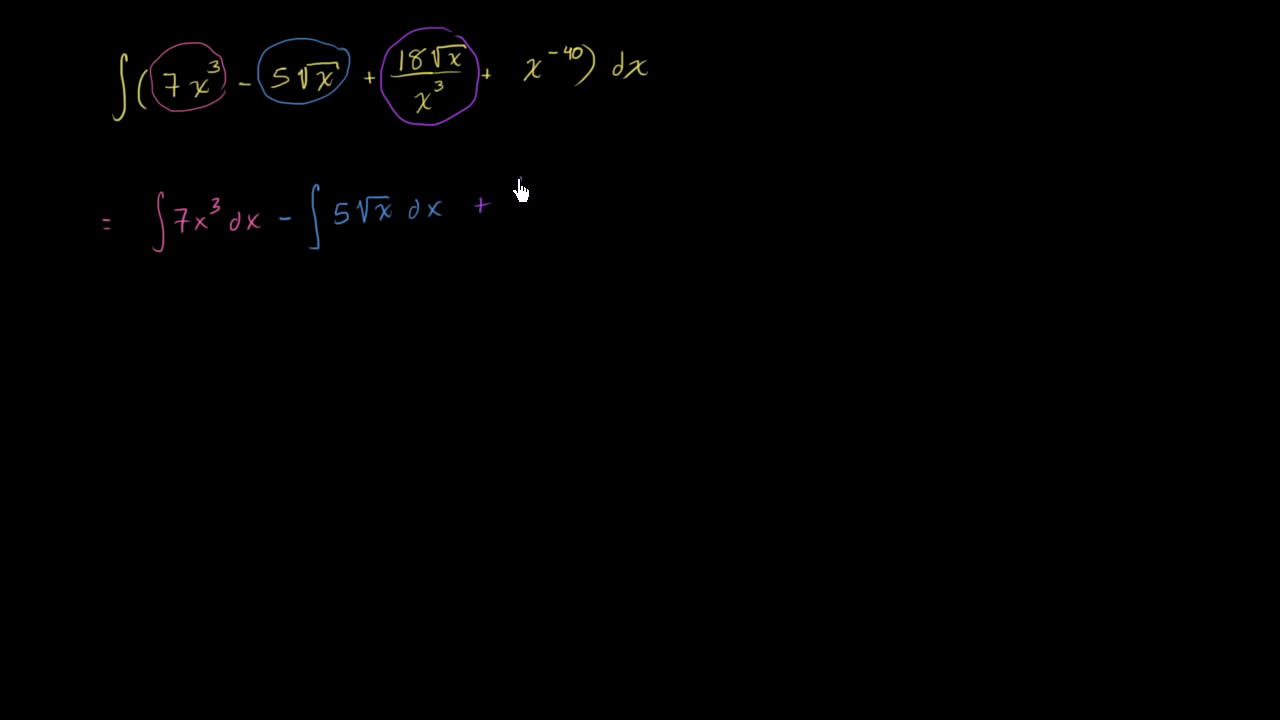 ∫(7x³ - 5√x + 18√x/x³ + x⁻⁴⁰) dx
= ∫7x³ dx - ∫5√x dx +